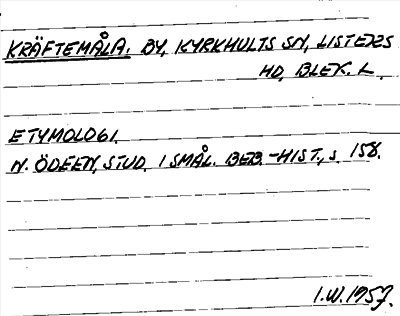 KRÄFTEMÅLA. BY, KYRKHULTS SN, LISTERS
HD, BLEK. L.
ETYMOLOGI.
N. ÖDEEN, STUD. I SMÅL. BEB.-HIST., s. 158.
I.W. 1957.